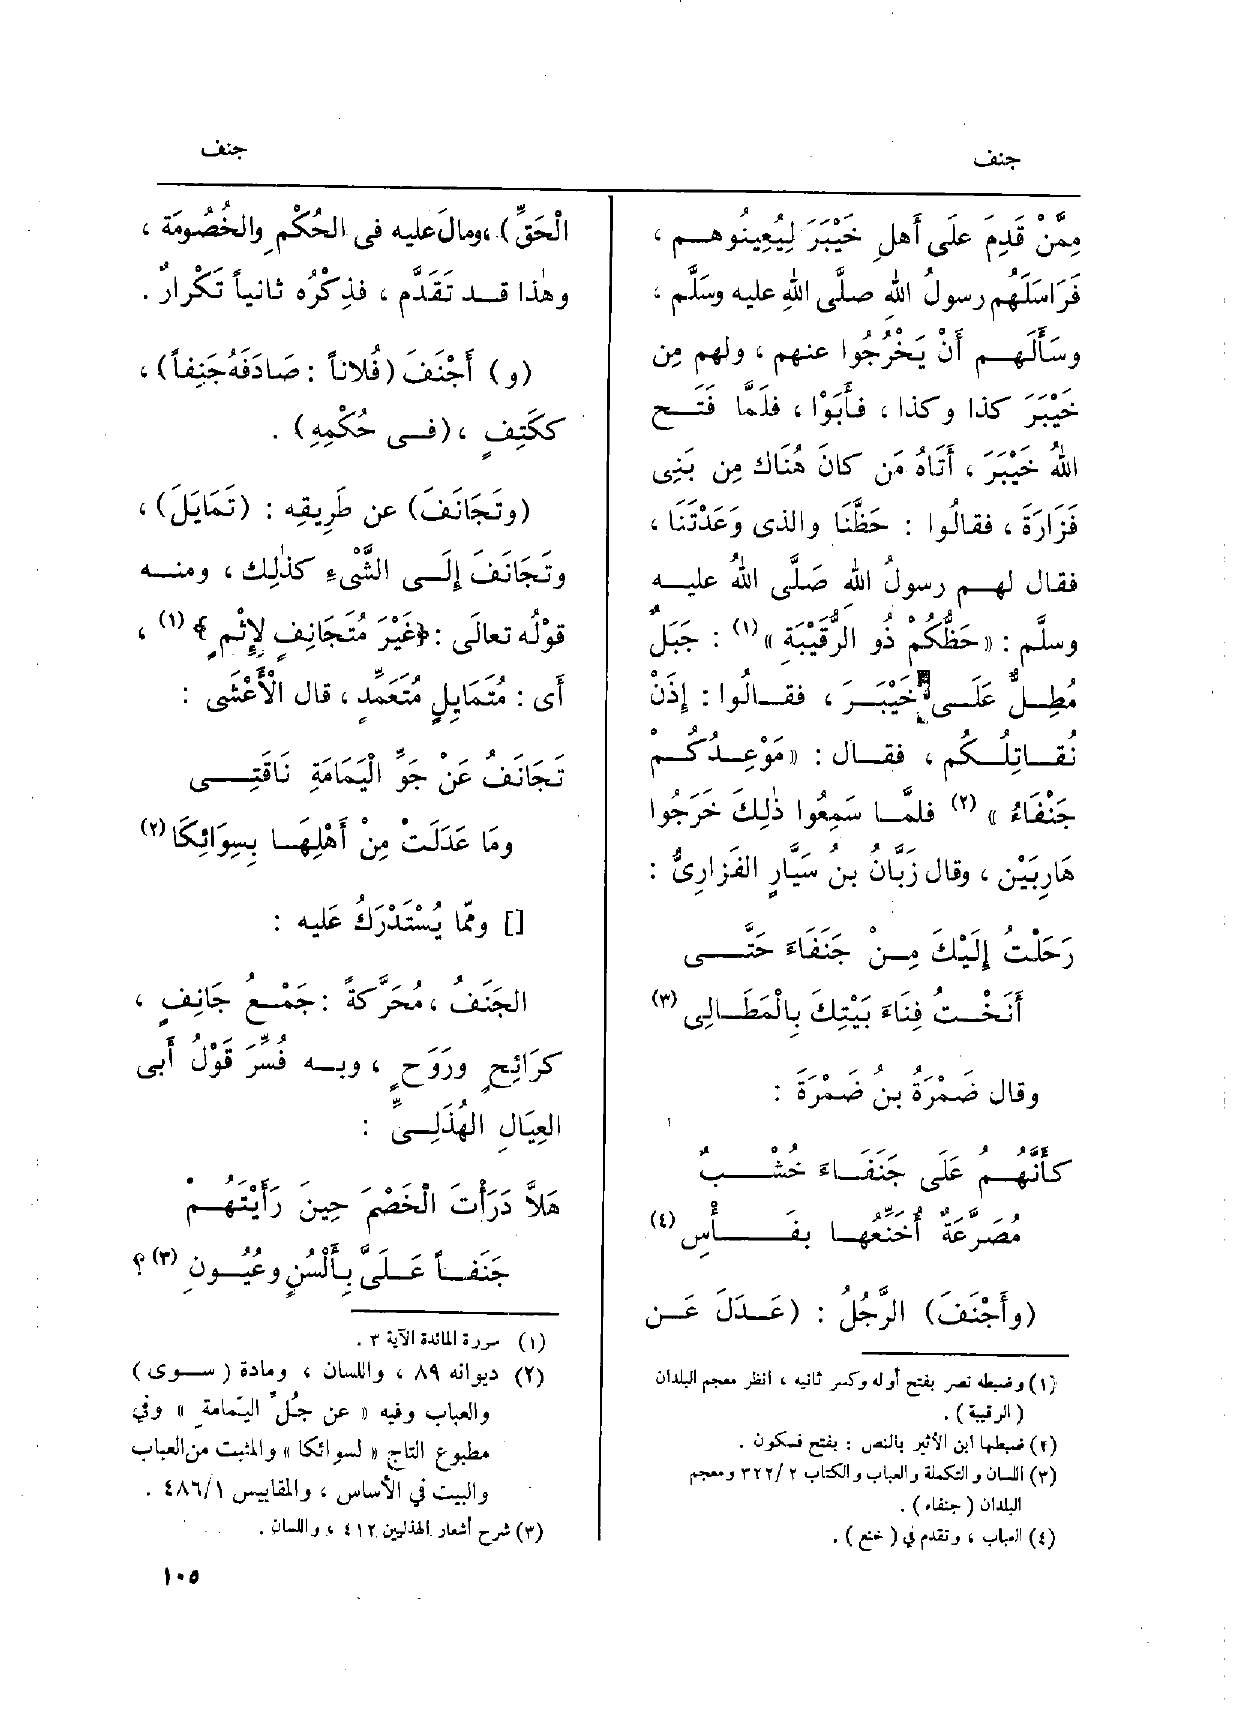 جنف
جنف
مِمَّنْ قَدِمَ عَلَى أَهلِ خَيْبَرَ لِيُعِينُوهـم ،
فَرَاسَلَهُم رسولُ اللهِ صلَّى اللهِ عليه وسَلَّم ،
وسَأَلَهـم أَنْ يَخْرُجُوا عنهم ، ولهم مِن
خَيْبَرَ كذا وكذا ، فأَبَوْا ، فلَمَّا فَتَـح
اللهُ خَيْبَرَ ، أَتَاهُ مَن كانَ هُنَاك مِن بَنِى
فَزَارَةَ ، فقالُوا : حَظَّنَا والذى وَعَدْتَنَا ،
فقال لهـم رسولُ اللهِ صَلَّى اللهُ عليـه
وسلَّم : «حَظُّكُمْ ذُو الرُّقَيْبَةِ» (١) : جَبَلٌ
مُطِـلٌّ عَلَـى خَيْبَـرَ ، فقـالُوا : إِذَنْ
نُقـاتِلـكُم ، فقـال : «مَوْعِـدُكُـمْ
جَنْفَاءُ » (٢) فلمَّـا سَمِعُوا ذٰلِكَ خَرَجُوا
هَارِبَيْن ، وقال زَبَّانُ بنُ سَيَّارٍ الفَزارِىُّ :
رَحَلْتُ إِلَيْكَ مِـنْ جَنَفَاءَ حَتَّــى
أَنَخْـتُ فِنَاءَ بَيْتِكَ بِالْمَطَـالِى (٣)
وقال ضَمْرَةُ بنُ ضَمْرَةَ :
كأَنَّهُـم عَلَى جَنَفَـاءَ خُشْـبٌ
مُصَرَّعَةٌ أُخَنِّعُهـا بفَـــأْسِ (٤)
(وأَجْنَفَ) الرَّجُلُ : (عَـدَلَ عَـن
(١) وضبطه نصر بفتح أوله وكسر ثانيه ، انظر معجم البلدان
(الرقيبة) .
(٢) ضبطها ابن الأثير بالنص : بفتح فسكون .
(٣) اللسان والتكملة والعباب والكتاب ٢ /٣٢٢ ومعجم
البلدان (جنفاء) .
(٤) العباب ، وتقدم في (خنع) .
الْحَقِّ) ،ومالَ عليه فى الحُكْمِ والخُصُومَة ،
وهٰذا قـد تَقَدَّم ، فذِكْرُه ثانياً تَكرارٌ .
(و) أَجْنَفَ (فُلاناً : صَادَفَهُ جَنِفاً) ،
ككَتِفٍ ، (فـى حُكْمِهِ) .
(وتَجَانَفَ) عن طَرِيقِه : (تَمَايَلَ) ،
وتَجَانَفَ إِلَـى الشَّىءِ كذٰلِك ، ومنـه
قولُه تعالَى :﴿غَيْرَ مُتَجَانِفٍ لِإِثْمٍ﴾ (١) ،
أَى : مُتَمَايِلٍ مُتَعَمِّدٍ ، قال الْأَعْشَى :
تَجَانَفُ عَنْ جَوِّ الْيَمَامَةِ نَاقَتِــى
وما عَدَلَتْ مِنْ أَهْلِهَـا بِسِوَائِكَا (٢)
[] وممّا يُسْتَدْرَكُ عَليه :
الجَنَفُ ، مُحَرَّكةً :جَمْـعُ جَانِفٍ ،
كرَائِحٍ ورَوَحٍ ، وبـه فُسِّرَ قَوْلُ أَبى
العِيَالِ الهُذَلِـىِّ :
هَلاَّ دَرَأْتَ الْخَصْمَ حِينَ رَأَيْتَهُـمْ
جَنَفـاً عَـلَىَّ بِأَلْسُنٍ وعُيُـونِ (٣) ؟
(١) سورة المائدة الآية ٣ .
(٢) ديوانه ٨٩ ، واللسان ، ومادة (ســوى)
والعباب وفيه «عن جُلِّ اليَمامَةِ» وفي
مطبوع التاج «لسوائكا» والمثبت من العباب
والبيت في الأساس ، والمقاييس ٤٨٦/١ .
(٣) شرح أشعار الهذليين ٤١٢ ، واللسان .
١٠٥